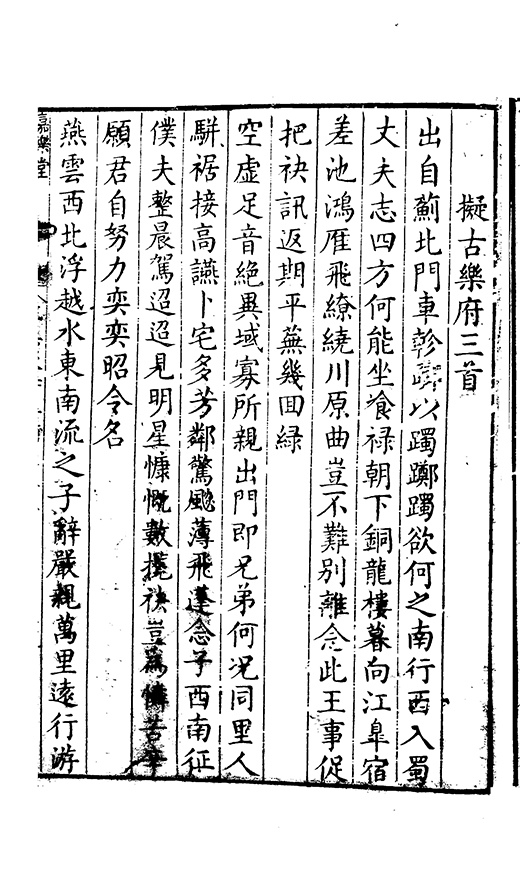 擬古樂府三首
出自薊北門車軫以躅躑躅欲何之南行西入蜀
丈夫志四方何能坐飡禄朝下銅龍樓暮向江臯宿
差池鴻雁飛繚繞川原曲豈不難別離念此王事促
把袂訊返期平蕪幾回緑
空虛足音絶異域寡所親出門即兄弟何况同里人
駢裾接高讌卜宅多芳鄰驚飈薄飛蓬念子西南征
僕夫整晨駕迢迢見明星慷慨數攬袂豈為憐苦
願君自努力奕奕昭令名
燕雲西北浮越水東南流之子辭嚴親萬里遠行游
嘉樂堂